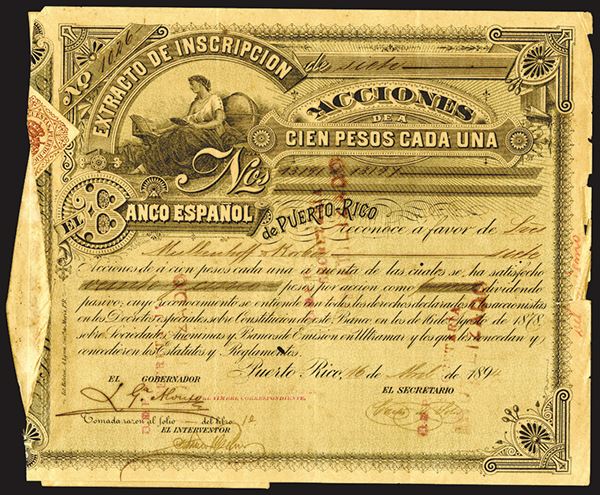 Nº 1026
EXTRACTO DE INSCRIPCION
de siete
ACCIONES
DE A
CIEN PESOS CADA UNA
Nos
EL BANCO ESPAÑOL
de PUERTO-RICO
Reconoce á favor de Sres
siete
Acciones de á cien pesos cada una á cuenta de las cuales se ha satisfecho
pesos por acción como dividendo
pasivo; cuyo reconocimiento se entiende con todos los derechos declarados á los accionistas
en los Decretos especiales sobre Constitucion de este Banco en los de 16 de Agosto de 1878,
sobre Sociedades Anonimas y Bancos de Emisión en Ultramar y los que les concedan y
concedieren los Estatutos y Reglamentos.
Puerto Rico, 16 de de 1894
EL GOBERNADOR
EL SECRETARIO
EL TIMBRE CORRESPONDIENTE.
Tomada razon al folio — del libro 1º
EL INTERVENTOR